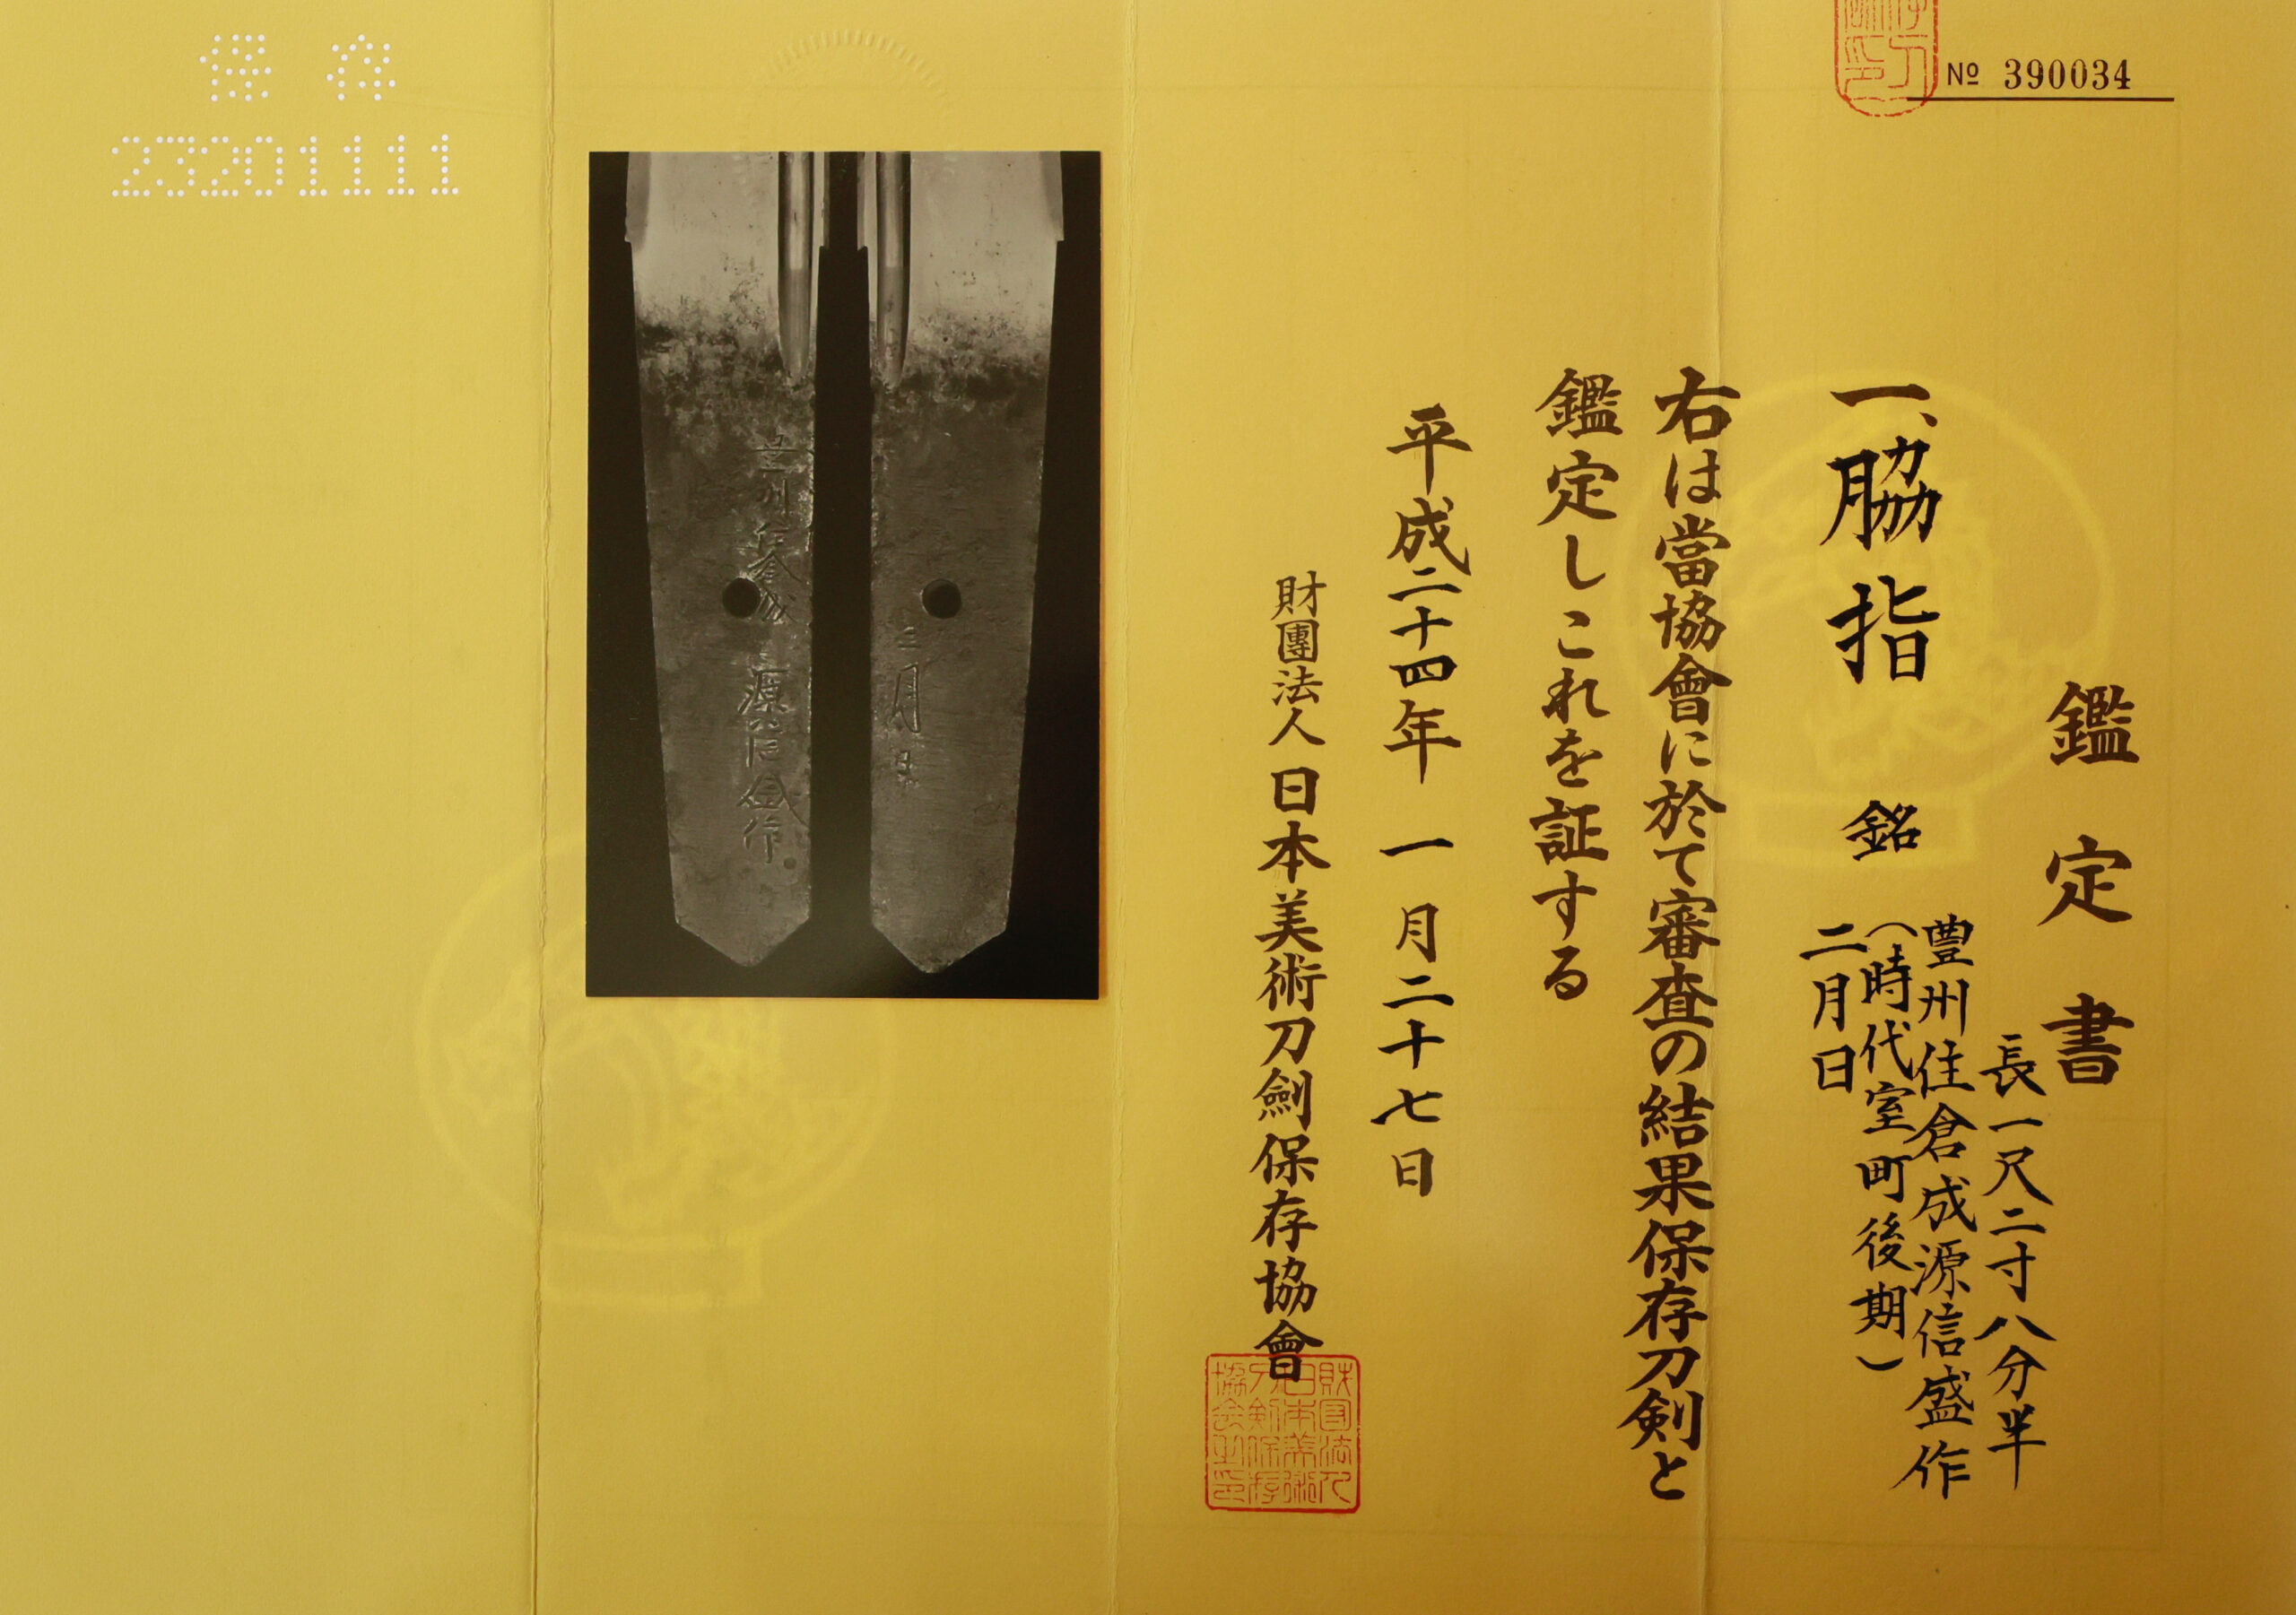 № 390034
鑑定書
一、脇指
長一尺二寸八分半
銘
豊州住倉成源信盛作
(時代室町後期)
二月日
右は當協會に於て審査の結果保存刀剣と
鑑定しこれを証する
平成二十四年 一月二十七日
財團法人 日本美術刀劍保存協會
財団法人日本美術刀剣保存協会之印
豊州住倉成
源信盛作
二月日
保存
23201111